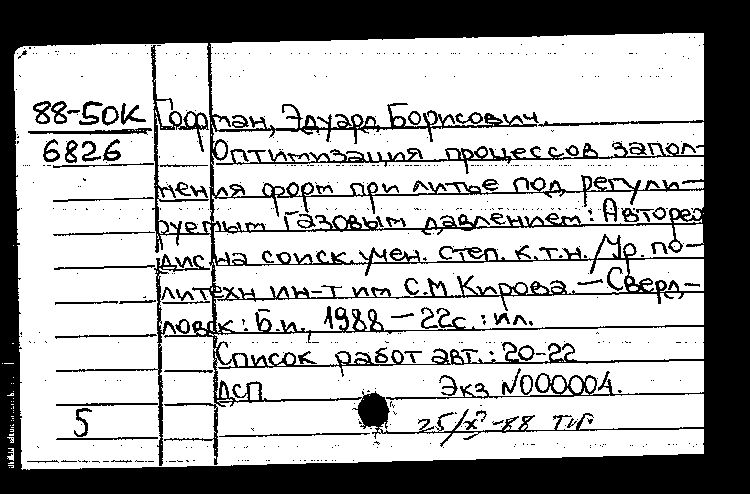 88-50К Гофман, Эдуард Борисович.
6826 Оптимизация процессов запол-
нения форм при литье под регули-
руемым газовым давлением: Автореф
дис на соиск. учен. степ. к.т.н. / Ур. по-
литехн ин-т им С.М Кирова. — Сверд-
ловск: Б.и., 1988 — 22с.: ил.
Список работ авт.: 20-22
ДСП Экз №000004.
5 25/X-88